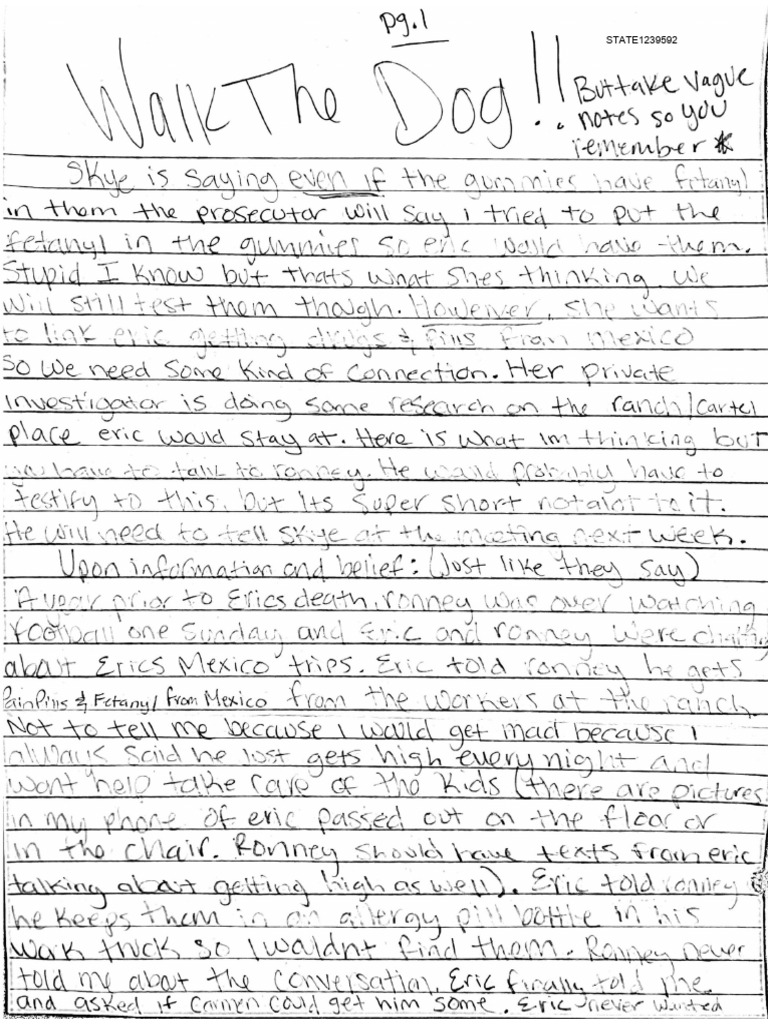 pg.1
STATE1239592
Walk The Dog!!
But take vague
notes so you
remember *
Skye is saying even if the gummies have fetanyl
in them the prosecutor will say I tried to put the
fetanyl in the gummies so eric would have them.
Stupid I know but thats what shes thinking. We
will still test them though. However, she wants
to link eric getting drugs & pills from mexico
so we need some kind of connection. Her private
investigator is doing some research on the ranch/cartel
place eric would stay at. Here is what im thinking but
you have to talk to ronney. He would probably have to
testify to this, but its super short not alot to it.
He will need to tell Skye at the meeting next week.
Upon information and belief: (Just like they say)
A year prior to Erics death, ronney was over watching
football one Sunday and Eric and ronney were chatting
about Erics Mexico trips. Eric told ronney he gets
Pain Pills & Fetanyl from Mexico from the workers at the ranch.
Not to tell me because I would get mad because I
always said he just gets high every night and
wont help take care of the kids (there are pictures
in my phone of eric passed out on the floor or
in the chair. Ronney should have texts from eric
talking about getting high as well). Eric told ronney
he keeps them in an allergy pill bottle in his
work truck so I wouldnt find them. Ronney never
told me about the conversation. Eric finally told me.
and asked if Carmen could get him some. Eric never wanted